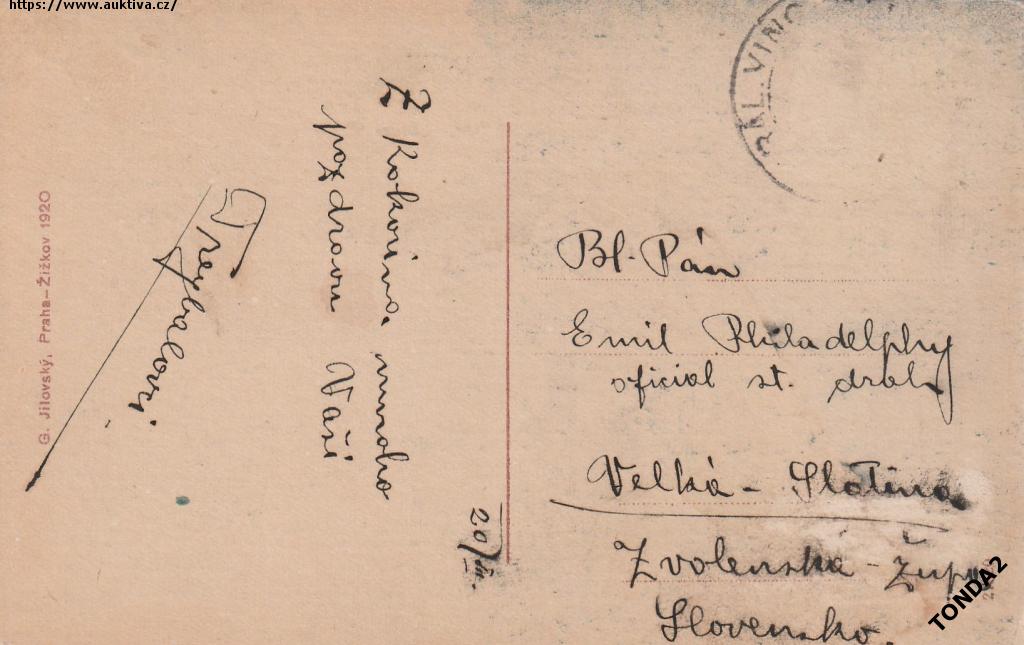 https://www.auktiva.cz/
KL. VINO
Z Kokořína mnoho
pozdravu Vaši
Treybalovi.
20/III.
G. Jilovský, Praha-Žižkov 1920
Bl. Pán
Emil Philadelphy
oficial st. dráhy
Velká - Slatina
Zvolenská - Župa
Slovensko.
TONDA2